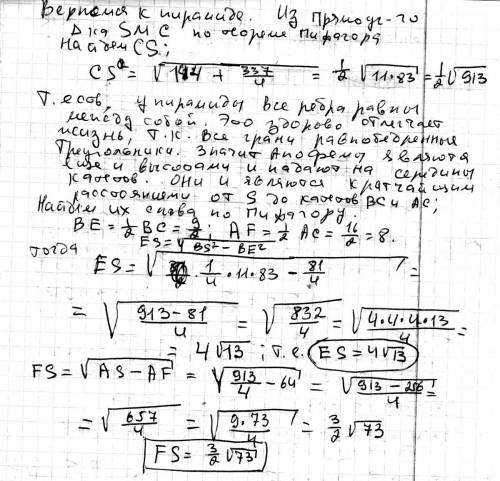 Вернемся к пирамиде. Из прямоуг-го
Δ-ка SMC по теореме Пифагора
Найдем CS;
CS = √(144 + 337/4) = 1/2 √(11·83) = 1/2 √913
Т.есть, у пирамиды все ребра равны
между собой. Это здорово облегчает
жизнь, т.к. все грани равнобедренные
треугольники. Значит Апофемы являются
еще и высотами и падают на середины
катетов. Они и являются кратчайшим
расстоянием от S до катетов BC и AC;
Найдем их снова по Пифагору.
BE = 1/2 BC = 9/2; AF = 1/2 AC = 16/2 = 8.
ES = √(BS² − BE²)
тогда
ES = √(1/4 · 11·83 − 81/4) =
= √((913−81)/4) = √(832/4) = √((4·4·4·13)/4) =
= 4√13; т.е. ES = 4√13
FS = √(AS − AF) = √(913/4 − 64) = √((913 − 256)/4) =
= √(657/4) = √((9·73)/4) = 3/2 √73
FS = 3/2 √73